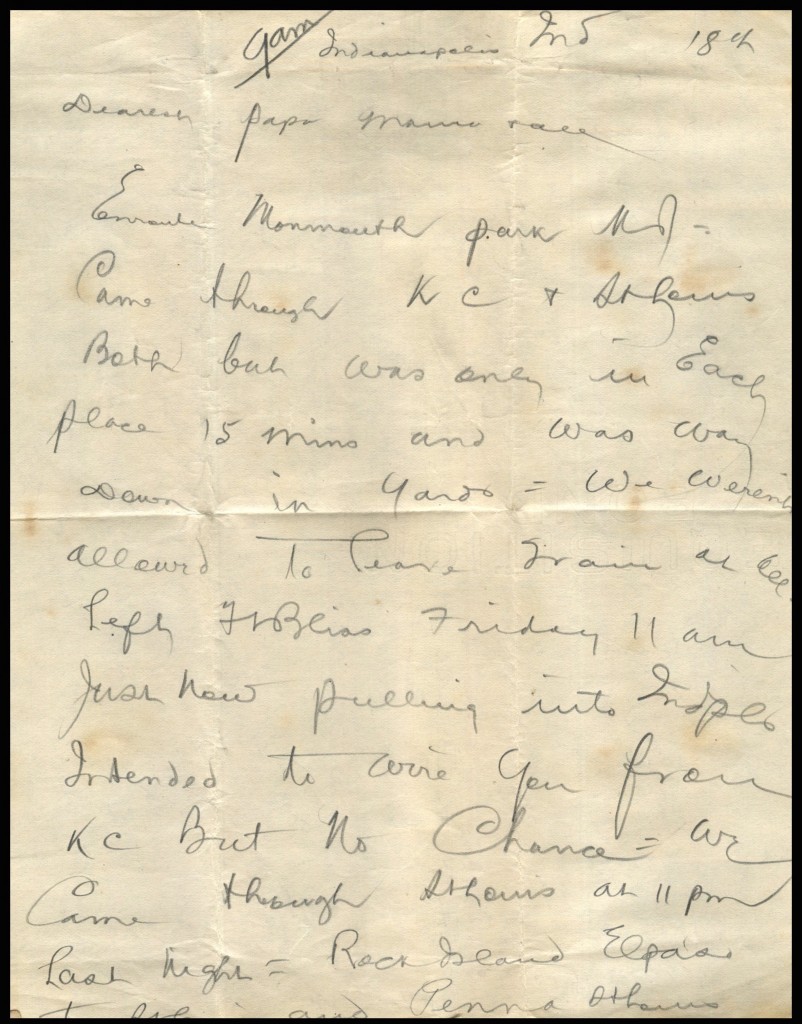 9am Indianapolis Ind 18th
Dearest papa Mama & all
Enroute Monmouth park Md =
Came through KC & St Louis
Both but was only in Each
place 15 mins and was way
Down in Yards = We weren't
allowed To leave train at all
Left Ft Bliss Friday 11 am
Just Now pulling into Indpls
Intended to wire you from
KC But No Chance = We
Came through St Louis at 11 pm
Last Night = Rock Island Elpaso
to St Louis and Penna St Louis